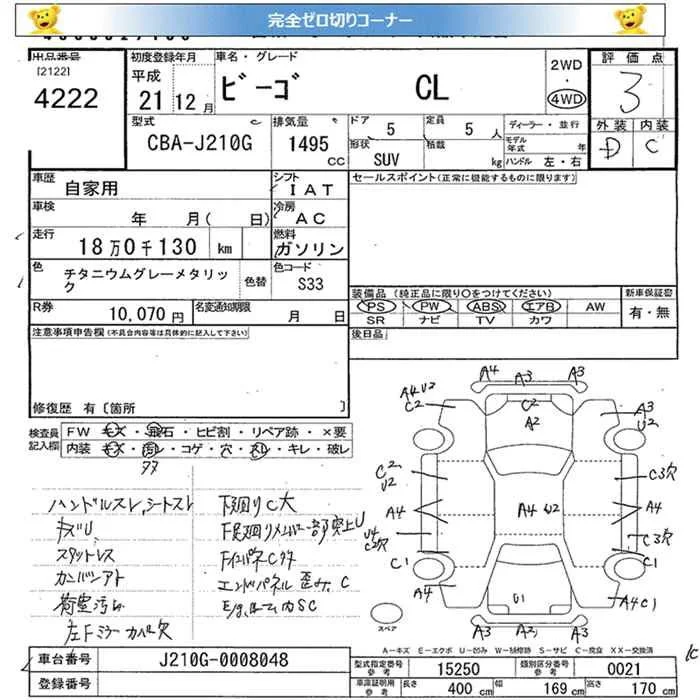 完全ゼロ切りコーナー
出品番号
[2122]
4222
初度登録年月
平成
21年12月
車名・グレード
ビーゴ CL
2WD
・
4WD
評価点
3
外装 内装
D C
型式
CBA-J210G
排気量
1495
CC
ドア 5
定員 5 人
形状 SUV
積載 kg
ディーラー・並行
モデル年式 年
ハンドル 左・右
車歴 自家用
シフト IAT
セールスポイント(正常に機能するものに限ります)
車検 年 月( 日)
冷房 AC
走行 18万0千130 km
燃料 ガソリン
色 チタニウムグレーメタリック
色替
色コード S33
装備品 (純正品に限り○をつけてください)
PS PW ABS エアB AW
SR ナビ TV カワ
新車保証書
有・無
R券 10,070円
名変通知期限 月 日
後日品
注意事項申告欄(不具合内容等は具体的に記入して下さい)
修復歴 有〔箇所 〕
検査員記入欄
FW キズ・飛石・ヒビ割・リペア跡・×要
内装 キズ・汚レ・コゲ・穴・スレ・キレ・破レ
ハンドルスレ,シートスレ
キズU
スタットレス
カンバンアト
荷室汚れ
左Fミラーカバー欠
下廻りC大
エンドパネル歪み, C
A4 A3 A3
A4 U2
C2
C2
A2
A3
U2
C2
U2
C3穴
A4
A4 U2
A4
U4
C2穴
C3穴
C1
C1
A4
U1
A4C1
スペア
A3 A2 A3
A-キズ E-エクボ U-凹み W-補修跡 S-サビ C-腐食 XX-交換済
車台番号 J210G-0008048
登録番号
型式指定番号 参考 15250
類別区分番号 参考 0021
車庫証明用 参考 長さ 400 cm 幅 169 cm 高さ 170 cm